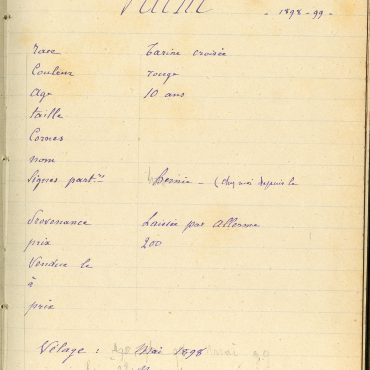 - 1898-99 -
race Tarine croisée
Couleur rouge
Age 10 ans
taille
Cornes
nom
Signes part.rs Hernie - (chez moi depuis le
Provenance Laissée par Allemme
prix 200
Vendue le
à
prix
Vélage : Mai 1898